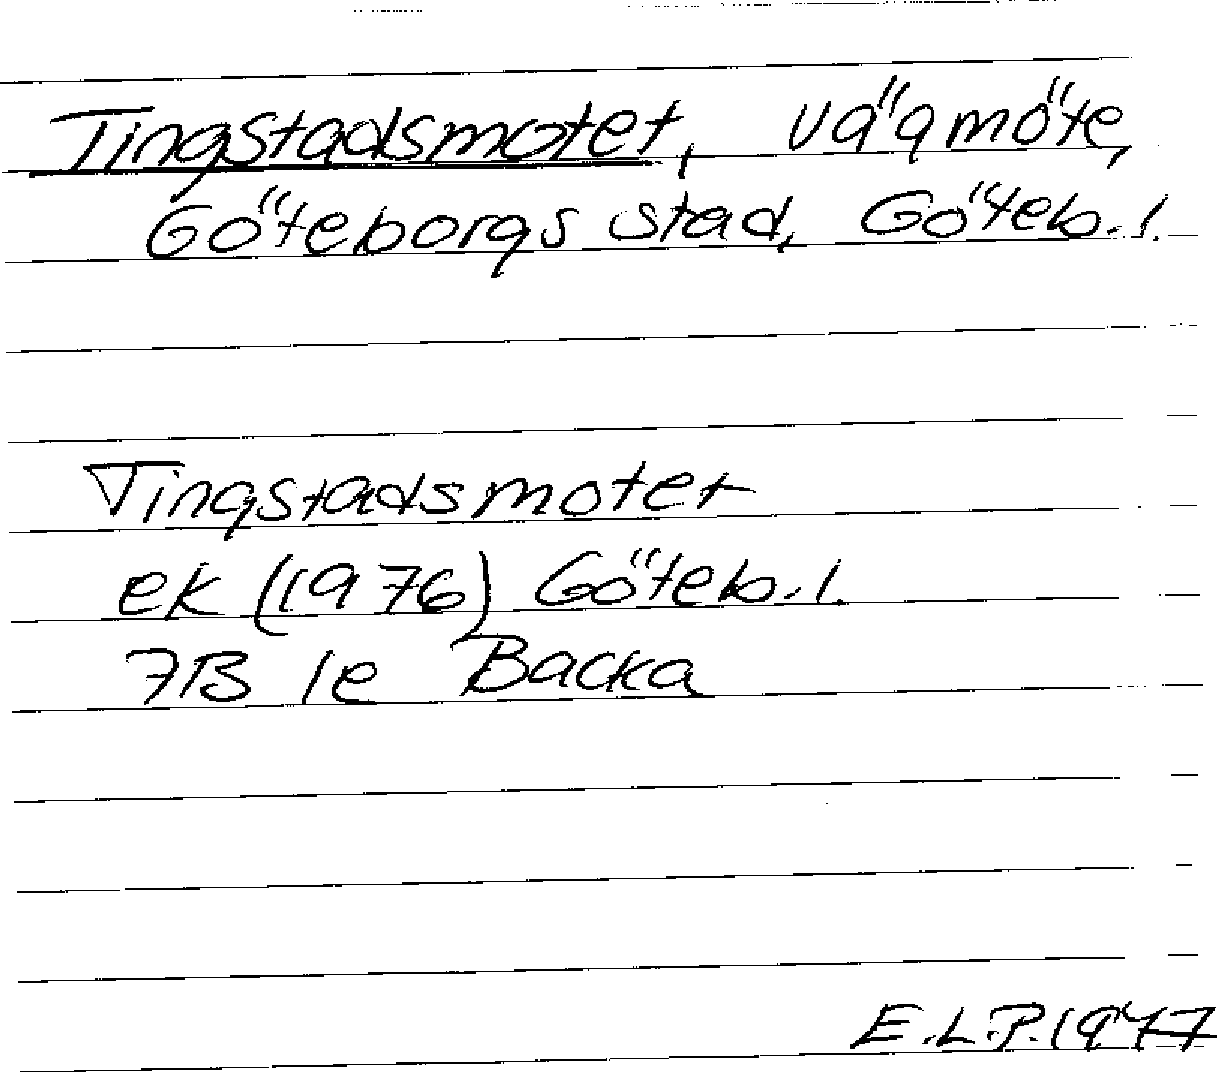 Tingstadsmotet, vägmöte,
Göteborgs stad, Göteb. l.
Tingstadsmotet
ek (1976) Göteb. l.
7B 1e Backa
E.L.P. 1977